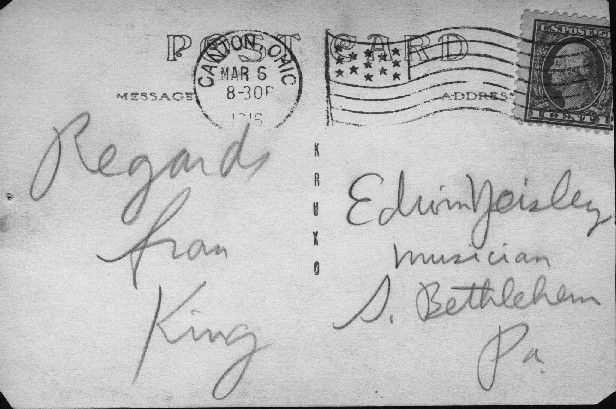 POST CARD
CANTON, OHIO
MAR 6
8-30P
1916
U.S. POSTAGE
1 CENT 1
MESSAGE
ADDRESS
KRUXO
Regards
from
King
Edwin Yeisley
Musician
S. Bethlehem
Pa.